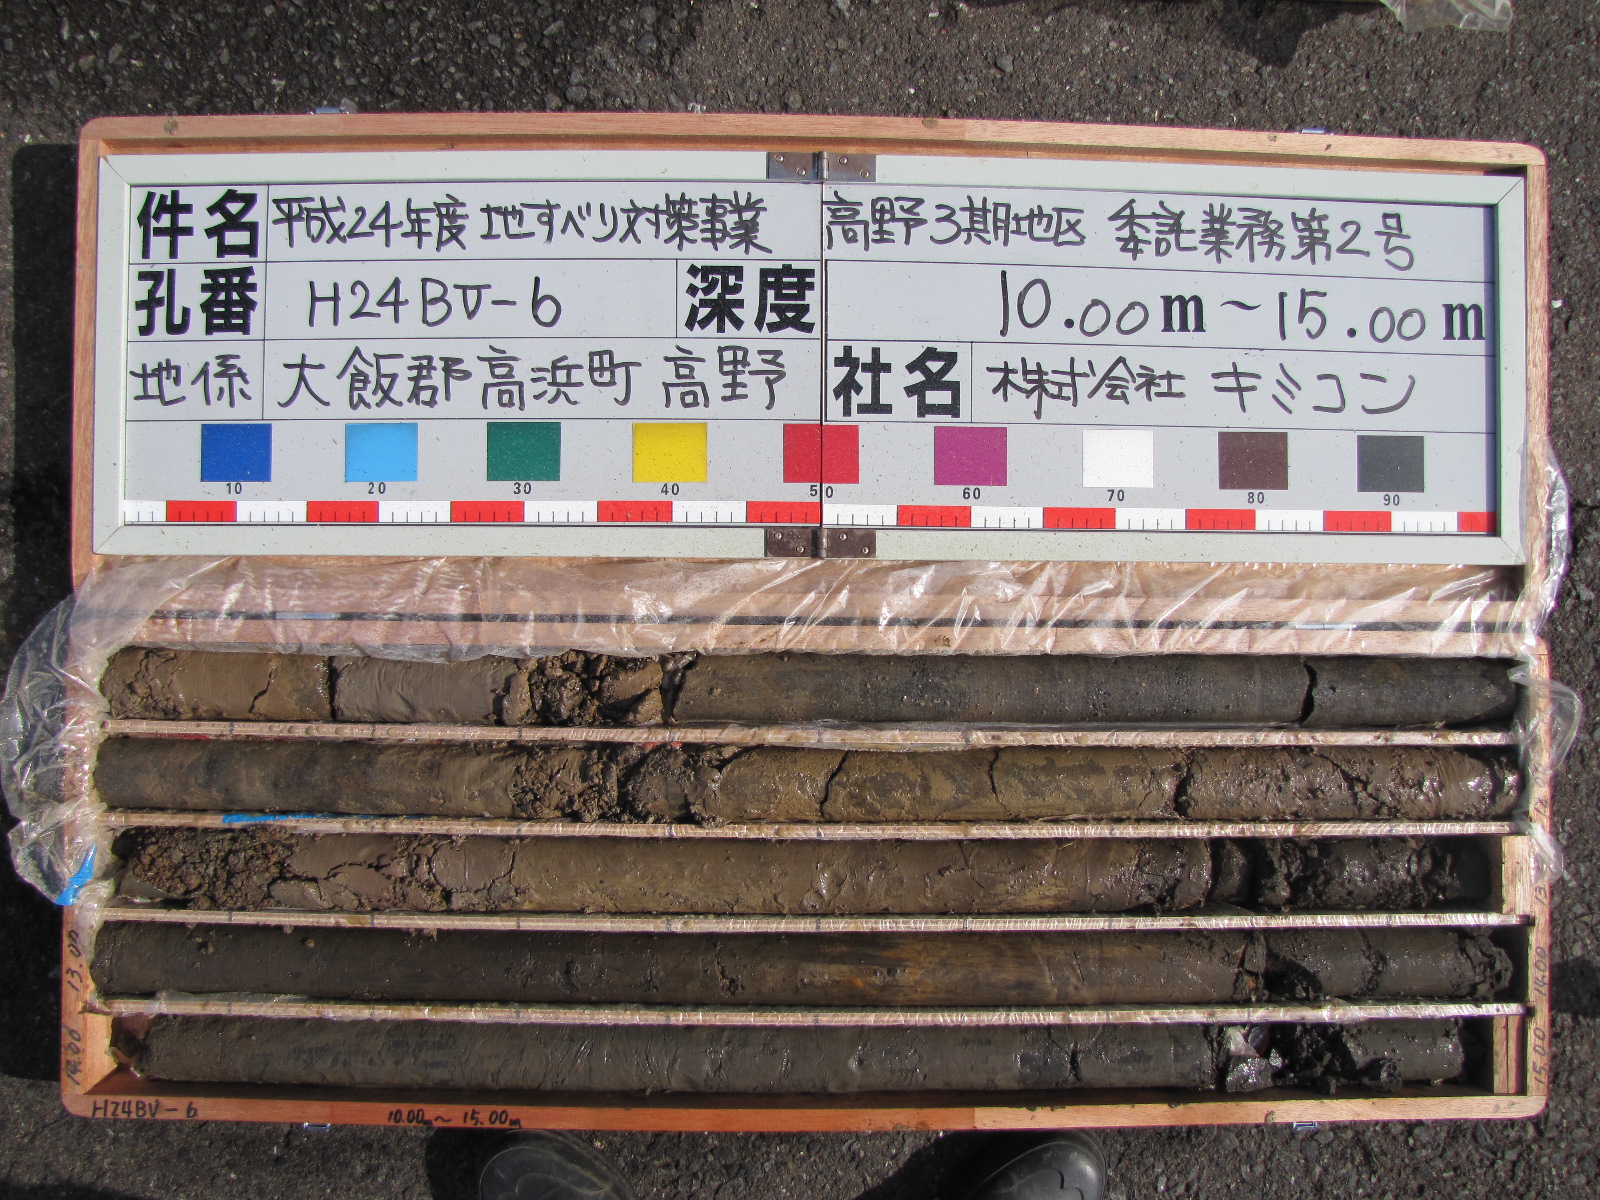 件名 平成24年度 地すべり対策事業 高野3期地区 委託業務第2号
孔番 H24BV-6 深度 10.00m~15.00m
地係 大飯郡高浜町 高野 社名 株式会社 キミコン
10 20 30 40 50 60 70 80 90
13.00 14.00
14.00 15.00
H24BV-6 10.00m~15.00m